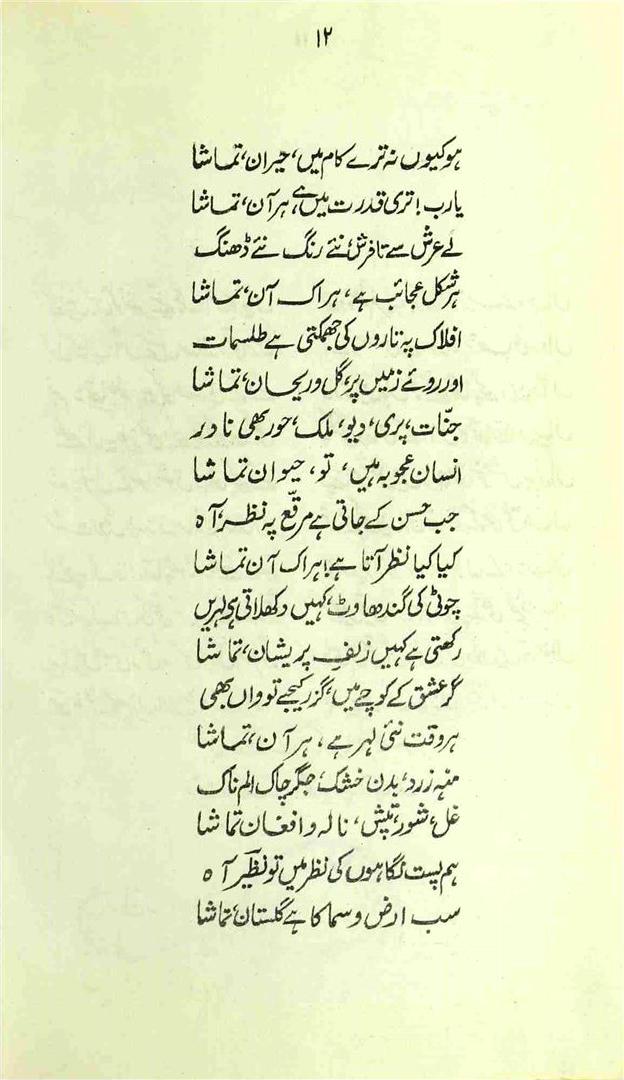 ۱۲
ہو کیوں نہ ترے کام میں، حیران، تماشا
یارب! تری قدرت میں ہے ہر آن، تماشا
لے عرش سے تا فرش نئے رنگ نئے ڈھنگ
ہر شکل عجائب ہے، ہر اک آن، تماشا
افلاک پہ تاروں کی جھمکتی ہے طلسمات
اور روئے زمیں پر، گل وریحان، تماشا
جنّات، پری، دیو، ملک، حور بھی نادر
انسان عجوبہ ہیں، تو، حیوان تماشا
جب حسن کے جاتی ہے مرقّع پہ نظر، آہ
کیا کیا نظر آتا ہے! ہر اک آن تماشا
چوٹی کی گندھاوٹ، کہیں دکھلاتی ہی لہریں
رکھتی ہے کہیں زلفِ پریشان، تماشا
گر عشق کے کوچے میں، گزر کیجے تو واں بھی
ہر وقت نئی لہر ہے، ہر آن، تماشا
منہ زرد، بدن خشک، جگر چاک الم ناک
غل، شور، تپش، نالہ وافغان تماشا
ہم پست نگاہوں کی نظر میں تو نظیرؔ آہ
سب ارض وسما کا ہے گلستان، تماشا